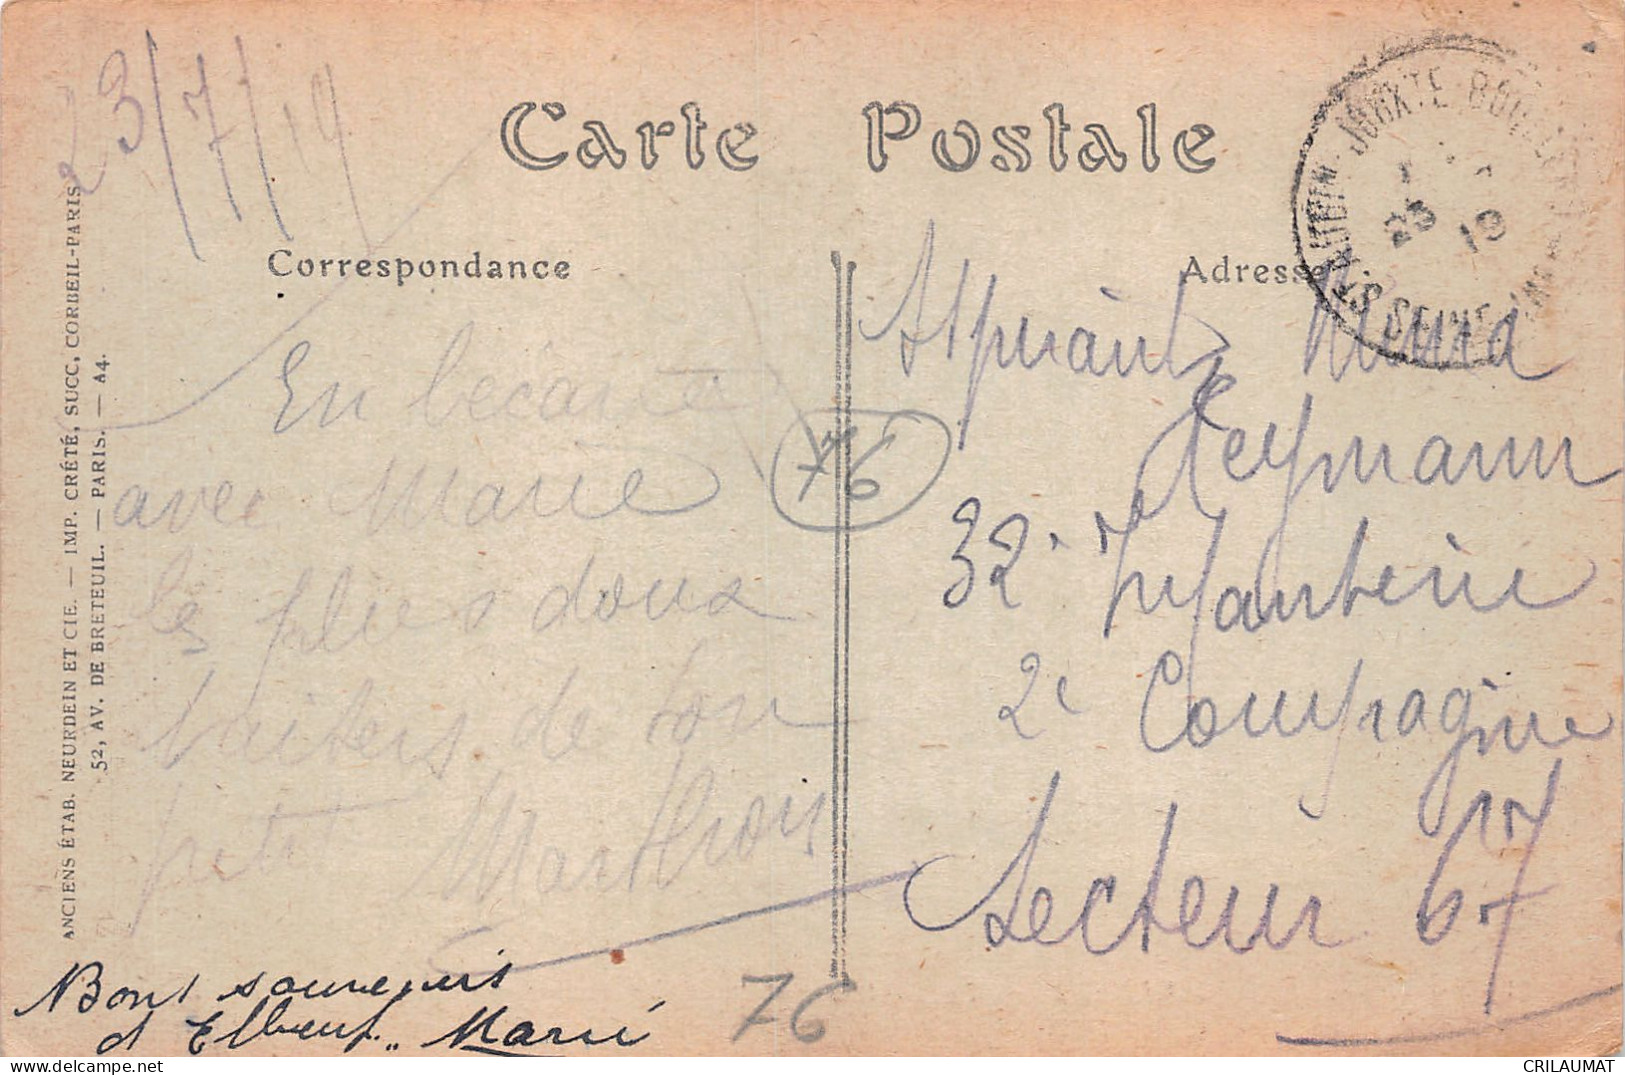 23/7/19
Carte Postale
Correspondance
Adresse
ST AUBIN-JOUXTE-BOULLENG
23
19
SEINE INF
En bécane
avec Marie
les plus doux
baisers de ton
petit Marthon
Bons souvenirs
d'Elbeuf. Marie
Aspirant
Leymann
32e Infanterie
2e Compagnie
Secteur 67
76
76
ANCIENS ÉTAB. NEURDEIN ET CIE. — IMP. CRÉTÉ, SUCC, CORBEIL-PARIS
52, AV. DE BRETEUIL. — PARIS. — A4.
CRILAUMAT